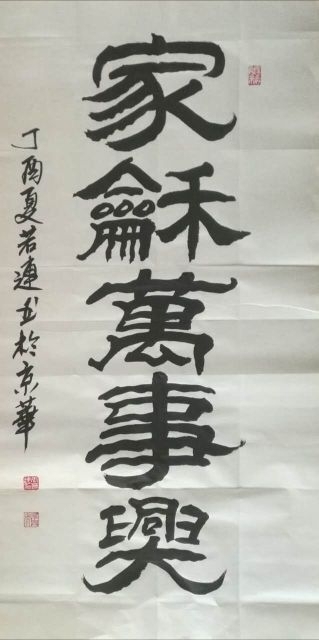 家龢萬事興
丁酉夏若連书於京華